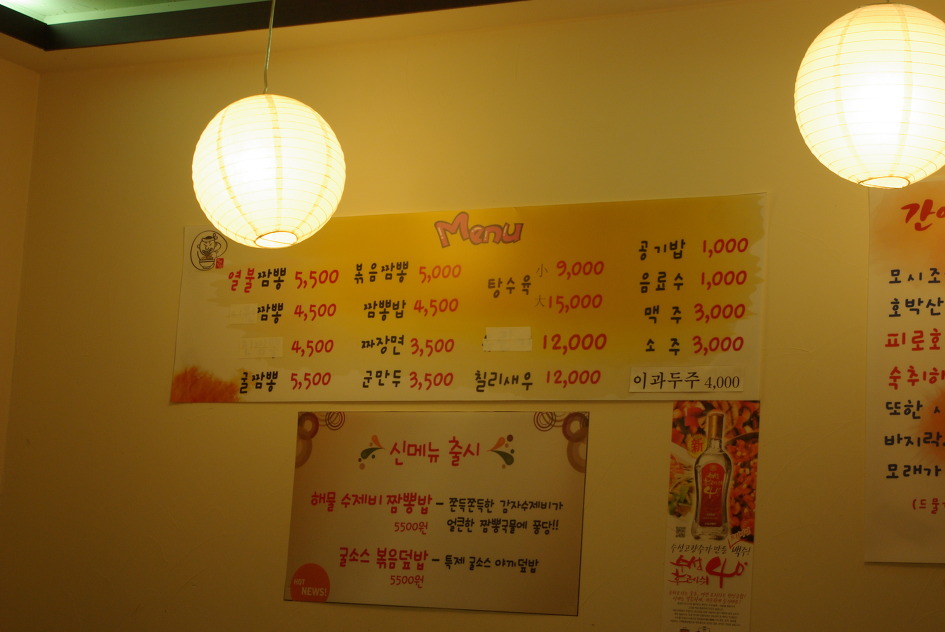 Menu
열불짬뽕 5,500
짬뽕 4,500
4,500
굴짬뽕 5,500
볶음짬뽕 5,000
짬뽕밥 4,500
짜장면 3,500
군만두 3,500
탕수육 小 9,000
大 15,000
12,000
칠리새우 12,000
공기밥 1,000
음료수 1,000
맥주 3,000
소주 3,000
이과두주 4,000
신메뉴 출시
해물 수제비 짬뽕밥 - 쫀득쫀득한 감자수제비가
5500원 얼큰한 짬뽕국물에 퐁당!!
굴소스 볶음덮밥 - 특제 굴소스 야끼덮밥
5500원
HOT
NEWS!
40°
모시조
호박산
피로호
숙취해
또한
바지락
모래가